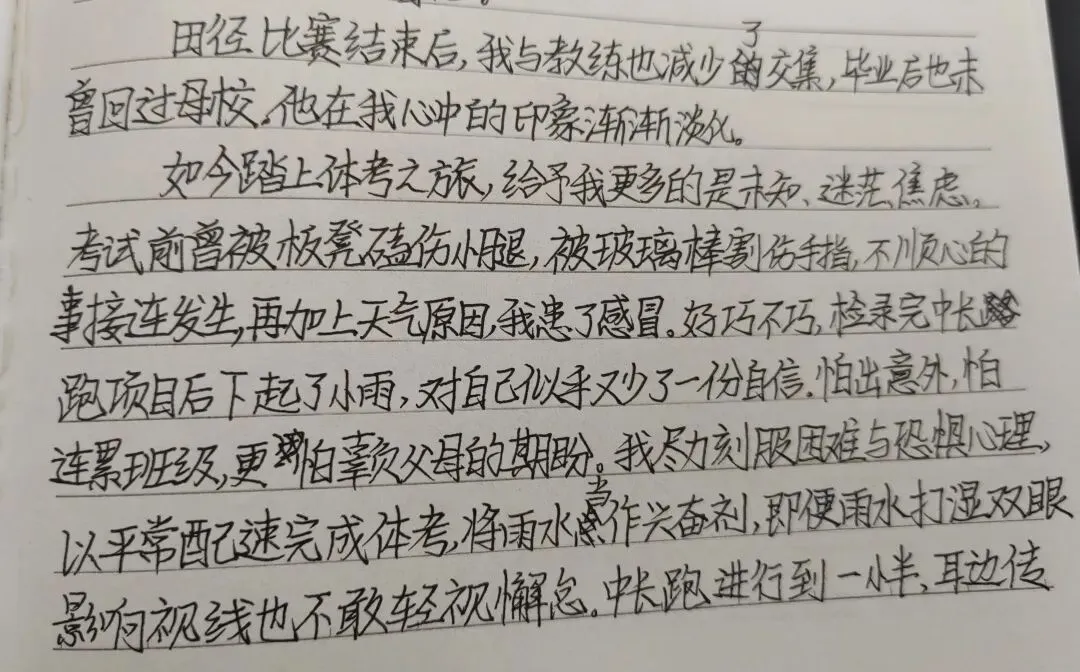 田径比赛结束后,我与教练也减少了交集,毕业后也未
曾回过母校。他在我心中的印象渐渐淡化。
如今踏上体考之旅,给予我更多的是未知、迷茫、焦虑。
考试前曾被板凳磕伤小腿,被玻璃棒割伤手指,不顺心的
事接连发生,再加上天气原因,我患了感冒。好巧不巧,检录完中长
跑项目后下起了小雨,对自己似乎又少了一份自信。怕出意外,怕
连累班级,更怕辜负父母的期盼。我尽力刻服困难与恐惧心理,
以平常配速完成体考,将雨水当作兴奋剂,即便雨水打湿双眼
影响视线也不敢轻视懈怠。中长跑进行到一小半、耳边传